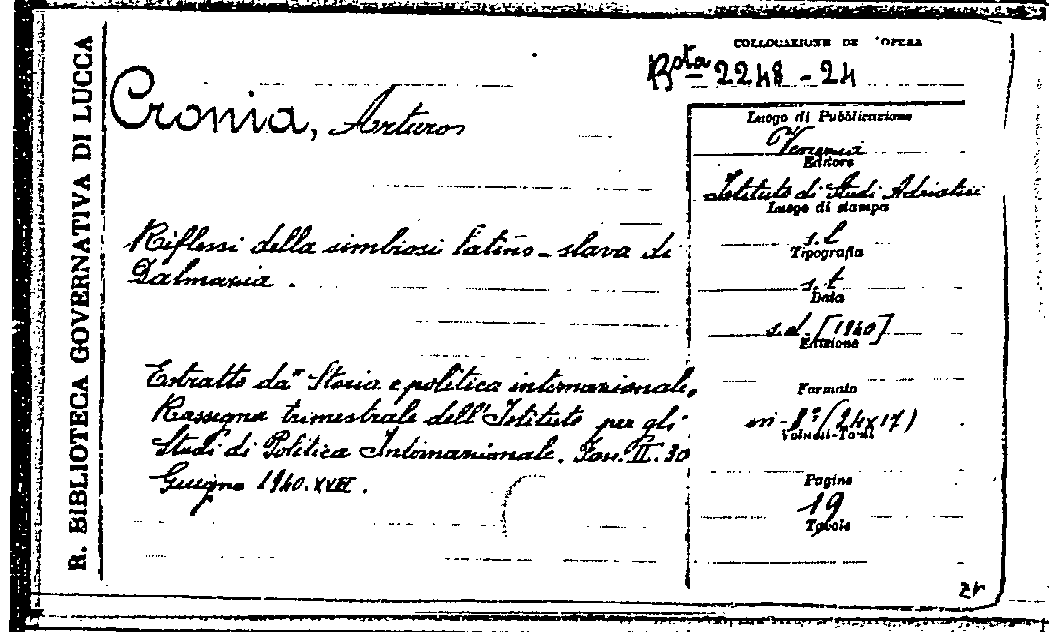 R. BIBLIOTECA GOVERNATIVA DI LUCCA
COLLOCAZIONE DE 'OPERA
Bsta 2248 - 24
Cronia, Arturo
Riflessi della simbiosi latino-slava di
Dalmazia.
Estratto da "Storia e politica internazionale,
Rassegna trimestrale dell'Istituto per gli
Studi di Politica Internazionale. Fasc. II. 30
Giugno 1940. XVIII.
Luogo di Pubblicazione
Editore
Istituto di Studi Adriatici
Luogo di stampa
s.l
Tipografia
s.t
Data
s.d. [1940]
Edizione
Formato
in-8° (24x17)
Volumi-Tomi
Pagine
19
Tavole